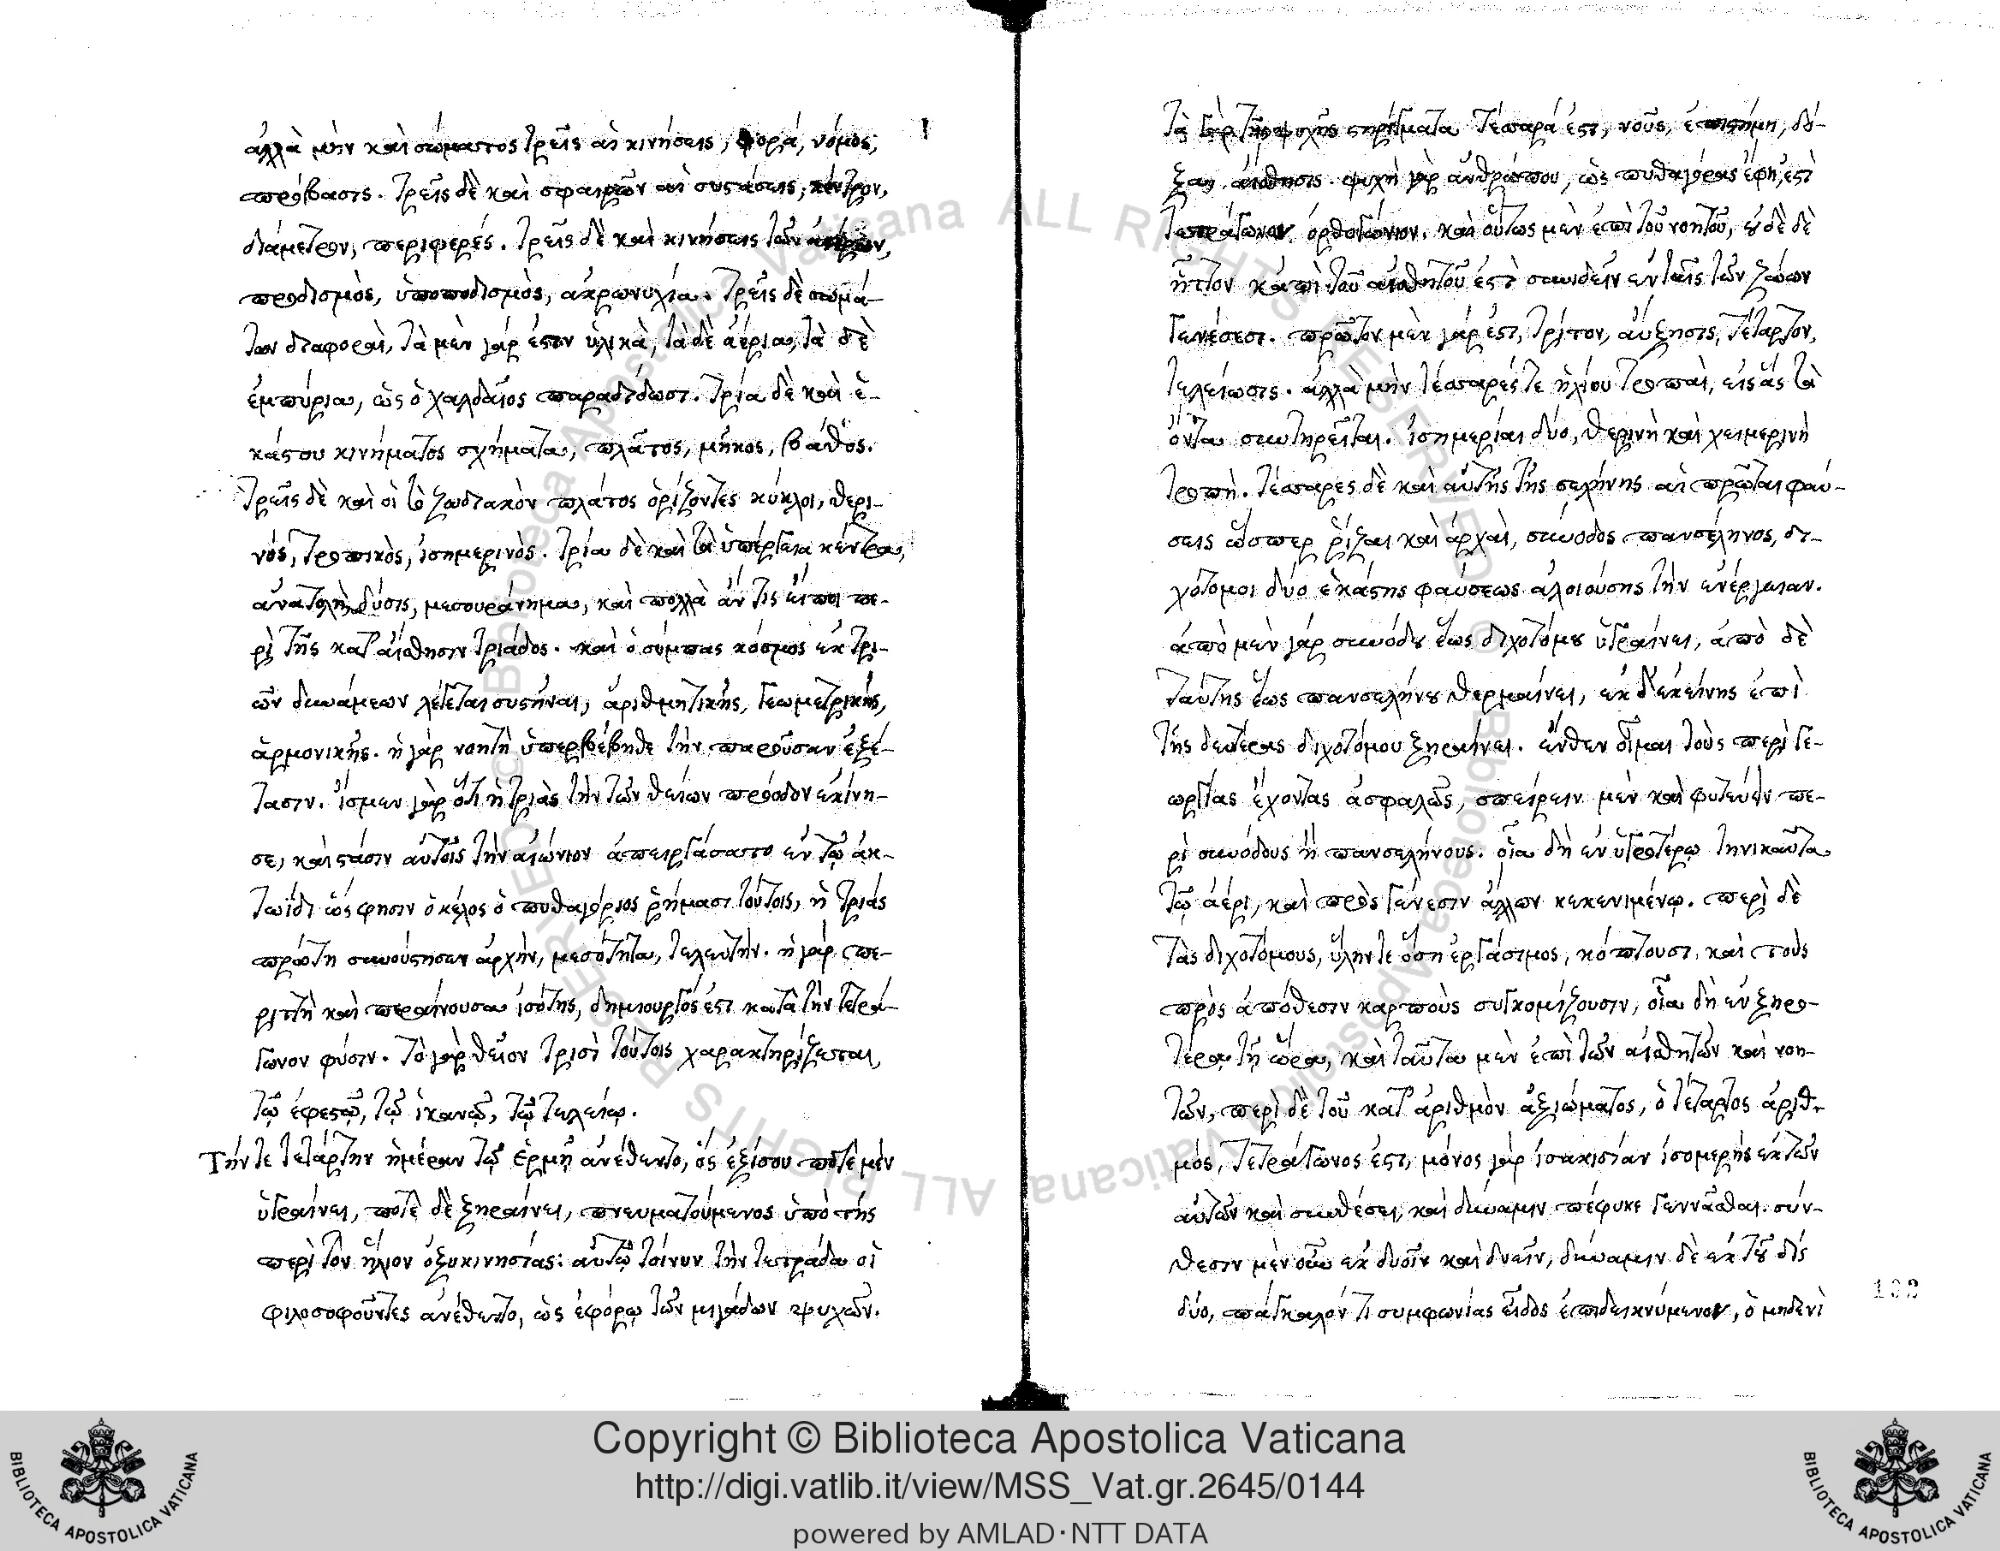 ἀλλὰ μὴν καὶ σώματος τρεῖς αἱ κινήσεις, φορά, νόμος,
πρόβασις. τρεῖς δὲ καὶ σφαιρῶν αἱ συστάσεις, κέντρον,
διάμετρον, περιφερές. τρεῖς δὲ καὶ κινήσεις τῶν ἀστέρων,
προδισμὸς, ὑποποδισμὸς, ἀκρωνυχία. τρεῖς δὲ σωμά-
των διαφοραὶ, τὰ μὲν γάρ ἐστιν ὑλικὰ, τὰ δὲ ἀέρια, τὰ δὲ
ἐμπύρια, ὡς ὁ χαλδαῖος παραδίδωσι. τρία δὲ καὶ ἑ-
κάστου κινήματος σχήματα, πλάτος, μῆκος, βάθος.
τρεῖς δὲ καὶ οἱ τὸ ζωδιακὸν πλάτος ὁρίζοντες κύκλοι, θερι-
νός, τροπικὸς, ἰσημερινὸς. τρία δὲ καὶ τὰ ὑπέργεια κέντρα,
ἀνατολὴ, δύσις, μεσουράνημα, καὶ πολλὰ ἄν τις εἴποι πε-
ρὶ τῆς κατ' αἴσθησιν τριάδος. καὶ ὁ σύμπας κόσμος ἐκ τρι-
ῶν δυνάμεων λέγεται συστῆναι, ἀριθμητικῆς, γεωμετρικῆς,
ἁρμονικῆς. ἡ γάρ νοητὴ ὑπερβέβηκε τὴν παροῦσαν ἐξέ-
τασιν. ἴσμεν γὰρ ὅτι ἡ τριὰς τὴν τῶν θείων πρόοδον ἐκίνη-
σε, καὶ στάσιν αὐτοῖς τὴν αἰώνιον ἀπειργάσατο ἐν τῷ ἀκ-
τωίδι ὥς φησιν ὀκέλος ὁ πυθαγόριος ῥήμασι τούτοις, ἡ τριάς
πρώτη συνούστησεν ἀρχὴν, μεσότητα, τελευτήν. ἡ γάρ πε-
ριττὴ καὶ περαίνουσα ἰσότης, δημιουργός ἐστι κατὰ τὴν τετρά-
γωνον φύσιν. τὸ γὰρ θεῖον τρισὶ τούτοις χαρακτηρίζεσται,
τῷ ἐφεστῷ, τῷ ἱκανῷ, τῷ τελείῳ.
Τήν τε τετάρτην ἡμέραν τῷ ἑρμῇ ἀνέθεντο, ὅς ἐξίσου ποτὲ μὲν
ὑγραίνει, ποτὲ δὲ ξηραίνει, πνευματούμενος ὑπὸ τῆς
περὶ τὸν ἥλιον ὀξυκινησίας: αὐτῷ τοίνυν τὴν τετράδα οἱ
φιλοσοφοῦντες ἀνέθεντο, ὡς ἐφόρῳ τῶν μιγάδων ψυχῶν.
τὰ γὰρ τῆς ψυχῆς στηρίγματα τέσσαρά ἐστι, νοῦς, ἐπιστήμη, δό-
ξα, αἴσθησις. ψυχὴ γὰρ ἀνθρώπου, ὡς πυθαγόρας ἔφη, ἐστὶ
τετράγωνον ὀρθογώνιον. καὶ οὕτως μὲν ἐπὶ τοῦ νοητοῦ, οὐδὲ δὲ
ἧττον κἀπὶ τοῦ αἰσθητοῦ ἐστὶ συνιδεῖν ἐν ταῖς τῶν ζώων
γενέσεσι. πρῶτον μὲν γάρ ἐστι, τρίτον, αὔξησις, τέταρτον,
τελείωσις. ἀλλὰ μὴν τέσσαρές τε ἡλίου τροπαὶ, εἰς ἅς τὰ
ὄντα συντηρεῖται. ἰσημερίαι δύο, θερινὴ καὶ χειμερινὴ
τροπὴ. τέσσαρες δὲ καὶ αὐτῆς τῆς σελήνης αἱ πρῶται φαύ-
σεις ὥσπερ ῥίζαι καὶ ἀρχαὶ, σύνοδος πανσέληνος, δι-
χότομοι δύο ἑκάστης φαύσεως ἀλοιούσης τὴν ἐνέργειαν.
ἀπὸ μὲν γάρ συνόδου ἕως διχοτόμου ὑγραίνει, ἀπὸ δὲ
ταύτης ἕως πανσελήνου θερμαίνει, ἐκ δ' ἐκείνης ἐπὶ
τῆς δευτέρας διχοτόμου ξηραίνει. ἔνθεν οἶμαι τοὺς περὶ γε-
ωργίας ἔχοντας ἀσφαλῶς, σπείρειν μὲν καὶ φυτεύειν πε-
ρὶ συνόδους ἢ πανσελήνους. οἷα δὴ ἐν ὑγροτέρῳ τηνικαῦτα
τῷ ἀέρι, καὶ πρὸς γένεσιν ἄλλων κεκενιμένῳ. περὶ δὲ
τὰς διχοτόμους, ὕλην τε ὅση ἐργάσιμος, κόπτουσι, καὶ τοὺς
πρὸς ἀπόθεσιν καρποὺς συγκομίζουσιν, οἷα δὴ ἐν ξηρο-
τέρᾳ τῇ ὥρᾳ, καὶ ταῦτα μὲν ἐπὶ τῶν αἰσθητῶν καὶ νοη-
τῶν, περὶ δὲ τοῦ κατ' ἀριθμὸν ἀξιώματος, ὁ τέταρτος ἀριθ-
μός, τετράγωνος ἐστι, μόνος γὰρ ἰσακισίαν ἰσομερὴς ἐκ τῶν
αὐτῶν καὶ συνθέσει, καὶ δύναμιν πέφυκε γεννᾶσθαι. σύν-
θεσιν μὲν οὖν ἐκ δυοῖν καὶ δυεῖν, δύναμιν δὲ ἐκ τοῦ δίς
δύο, πάγκαλόν τι συμφωνίας εἶδος ἐπιδεικνύμενον, ὁ μηδενὶ
Copyright © Biblioteca Apostolica Vaticana
http://digi.vatlib.it/view/MSS_Vat.gr.2645/0144
powered by AMLAD·NTT DATA
BIBLIOTECA APOSTOLICA VATICANA
BIBLIOTECA APOSTOLICA VATICANA